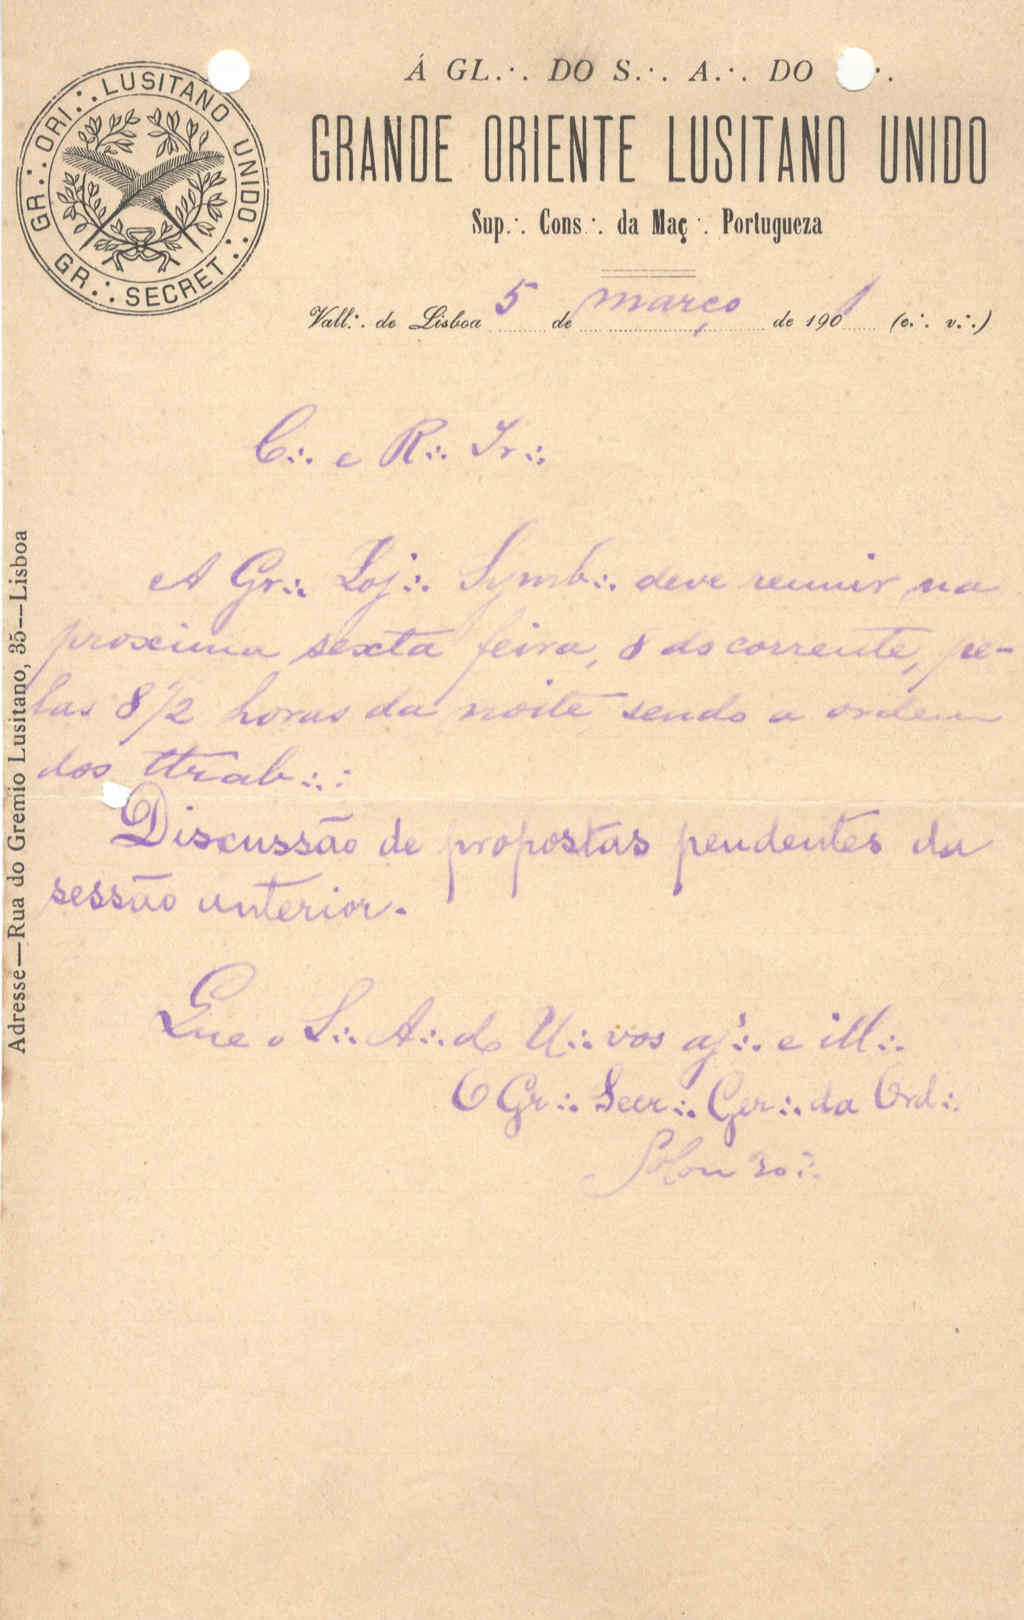 GR.·. ORI.·. LUSITANO UNIDO.·.
GR.·. SECRET.·.
Á GL.·. DO S.·. A.·. DO .·.
GRANDE ORIENTE LUSITANO UNIDO
Sup.·. Cons.·. da Maç.·. Portugueza
Vall.·. de Lisboa 5 de março de 1901 (e.·. v.·.)
C.·. e R.·. Ir.·.
A Gr.·. Loj.·. Symb.·. deve reunir na
proxima sexta feira, 8 do corrente, pe-
las 8 1/2 horas da noite sendo a ordem
dos ttrab.·.:
Discussão de propostas pendentes da
sessão anterior.
Que o S.·. A.·. do U.·. vos aj.·. e ill.·.
O Gr.·. Secr.·. Ger.·. da Ord.·.
Solon
Adresse—Rua do Gremio Lusitano, 35—Lisboa